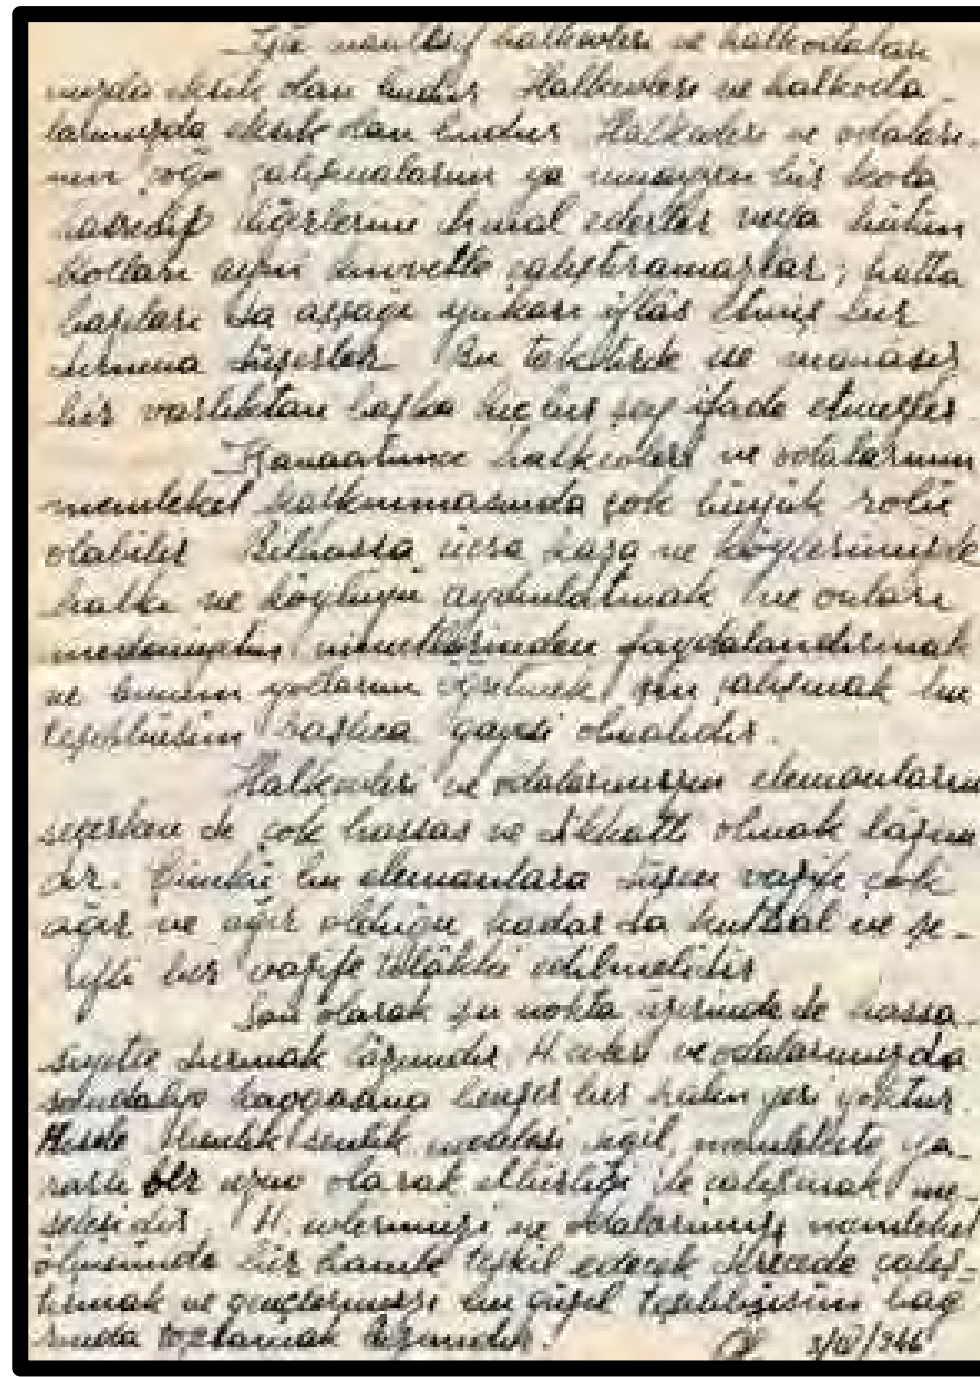 İşte maalesef halkevleri ve halkodaları
mızda eksik olan budur. Halkevleri ve halkoda
larımızda eksik olan budur. Halkevleri ve odaları-
nın çoğu çalışmalarını ya muayyen bir kola
hasredip diğerlerini ihmal ederler veya bütün
kolları aynı kuvvette çalıştıramazlar; hatta
bazıları da aşağı yukarı iflas etmiş bir
duruma düşerler. Bu takdirde ise manasız
bir varlıktan başka hiç bir şey ifade etmezler
Kanaatımca halkevleri ve odalarının
memleket kalkınmasında çok büyük rolü
olabilir. Bilhassa ücra kaza ve köylerimizde
halkı ve köylüyü aydınlatmak ve onları
medeniyetin nimetlerinden faydalandırmak
ve bunun yollarını öğretmek için çalışmak bu
teşekkülün başlıca gayesi olmalıdır.
Halkevleri ve odalarımızın elemanlarını
seçerken de çok hassas ve dikkatli olmak lâzım
dır. Çünkü bu elemanlara düşen vazife çok
ağır ve ağır olduğu kadar da kutsal ve şe-
refli bir vazife telâkki edilmelidir
Son olarak şu nokta üzerinde de hassa
siyetle durmak lâzımdır. H. evleri ve odalarımızda
sandalye kavgasına benzer bir halin yeri yoktur.
Mesele benlik senlik meselesi değil, memlekete ya-
rarlı bir uzuv olarak elbirliği ile çalışmak me-
selesidir. H. evlerimizi ve odalarımızı memleket
ölçüsünde bir hamle teşkil edecek derecede çalış-
tırmak ve gençlerimizi bu güzel teşekkülün bağ
rında toplamak lâzımdır.